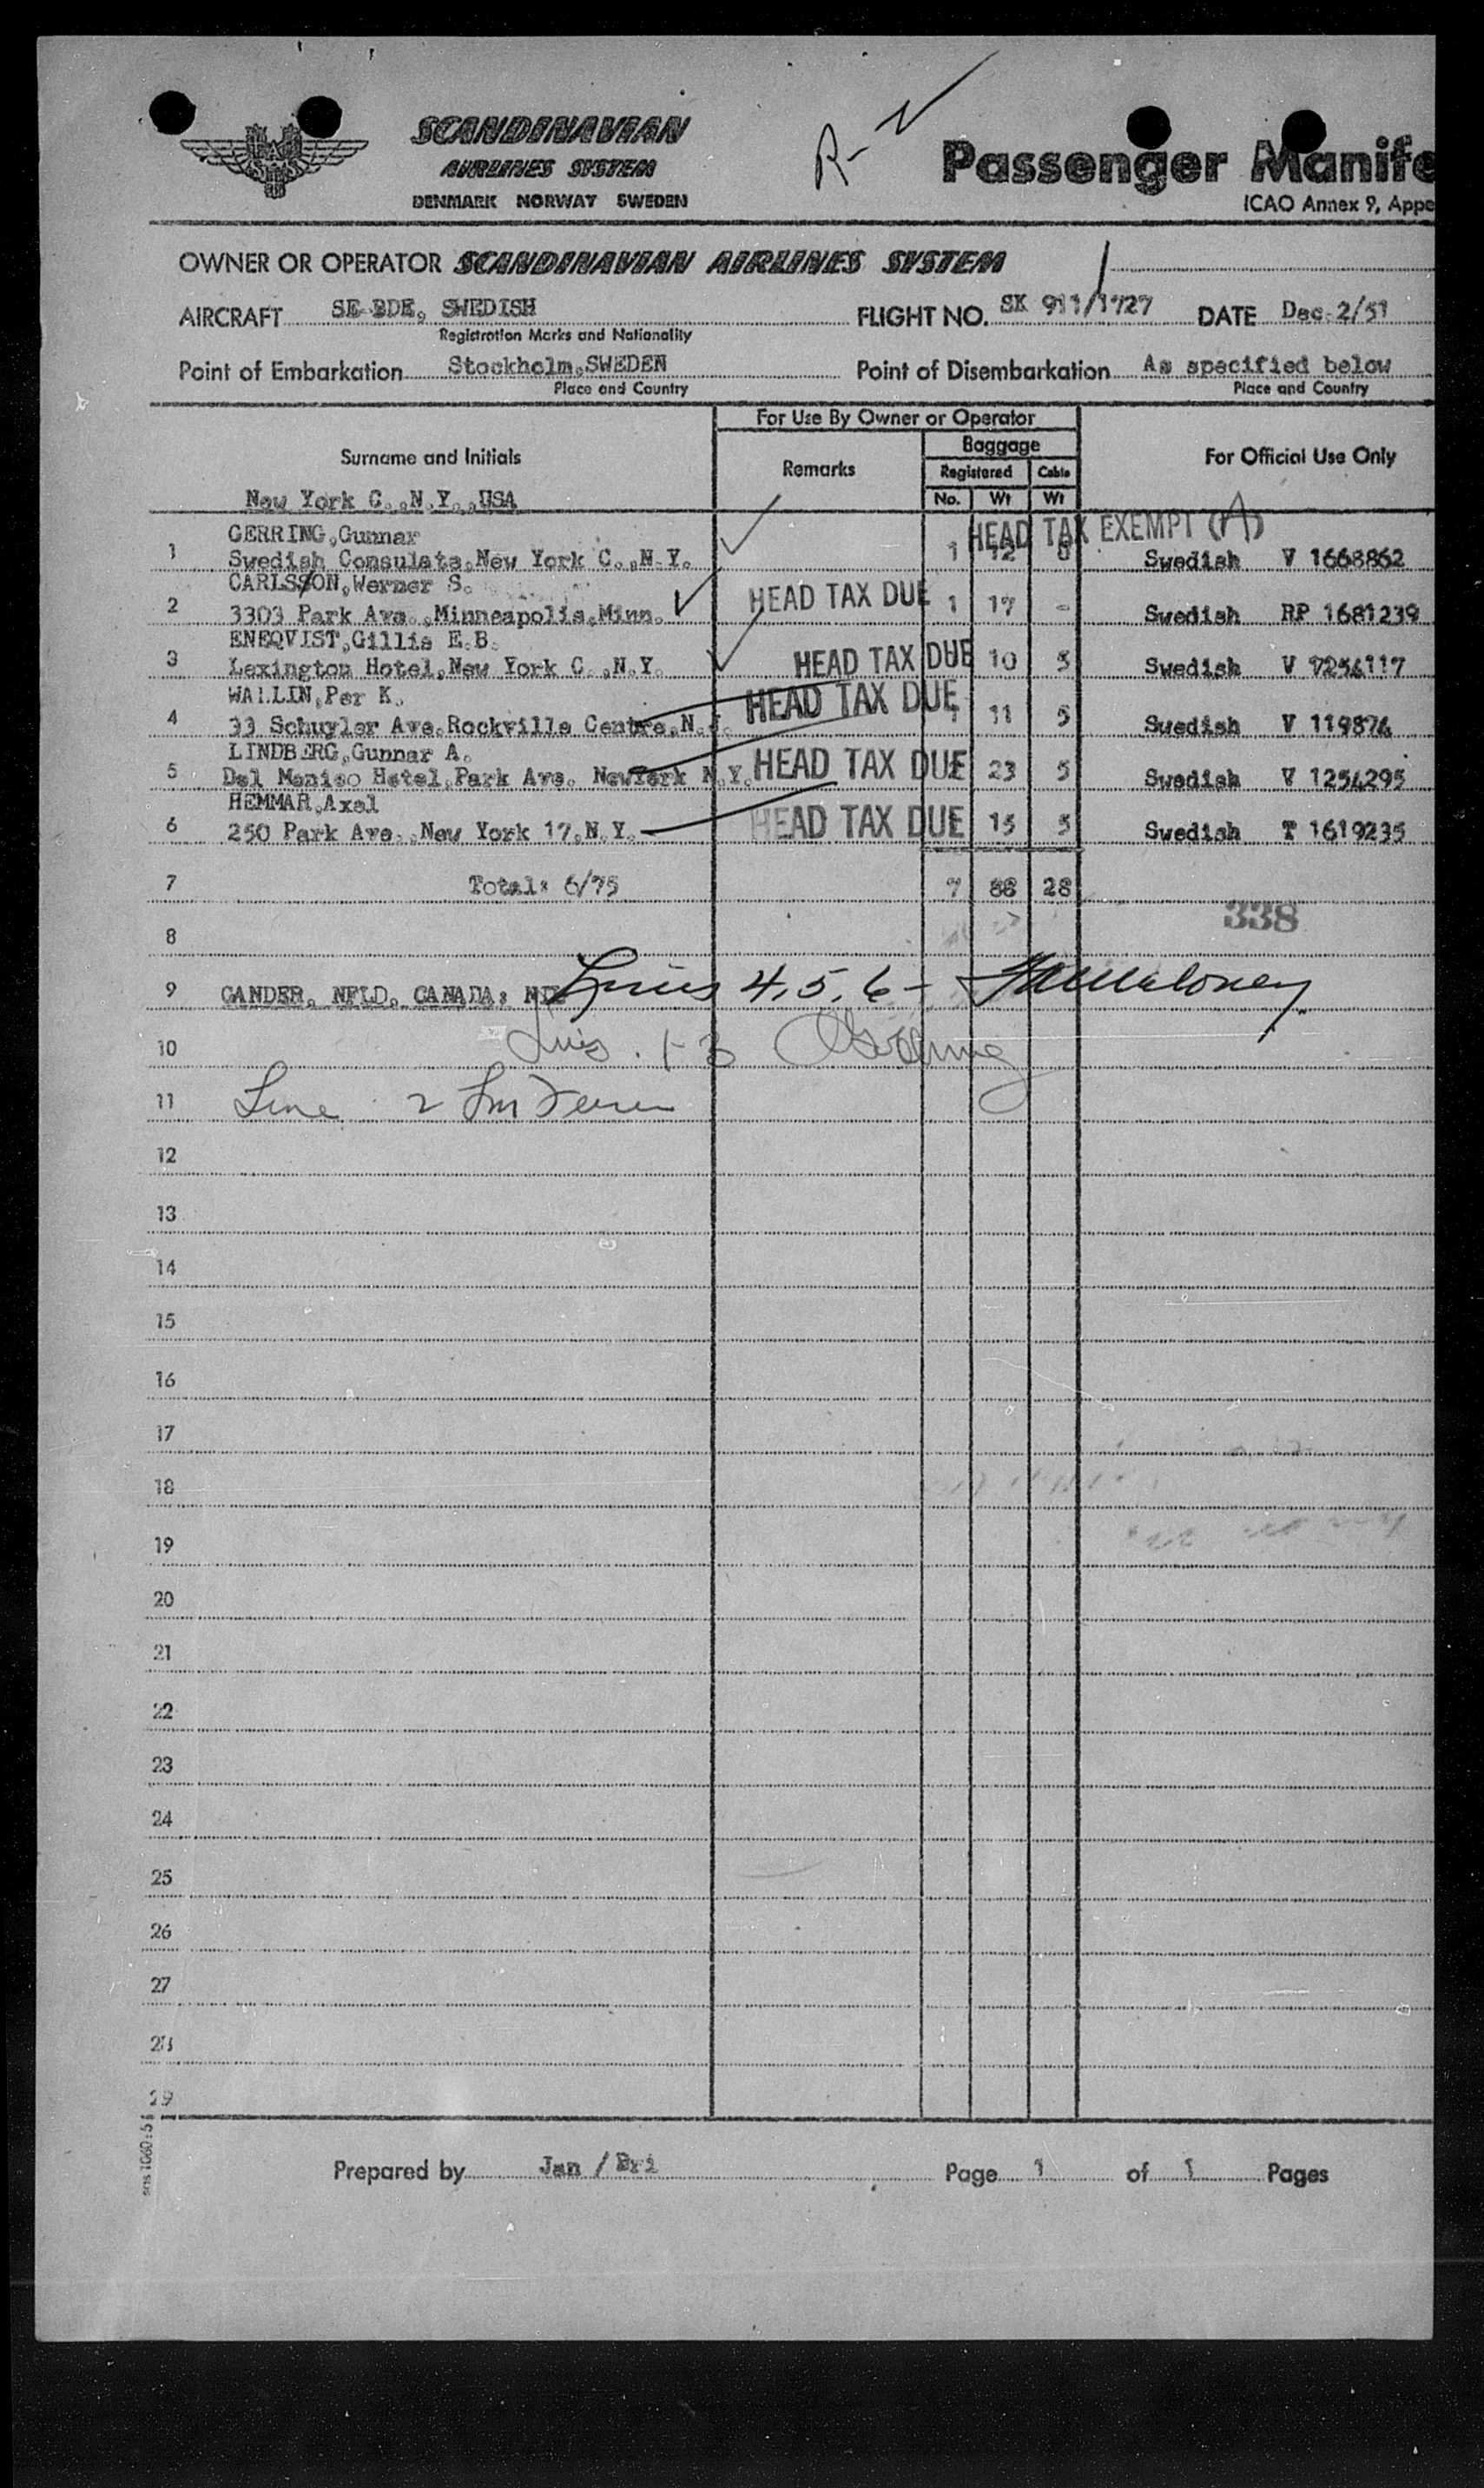 SCANDINAVIAN
AIRLINES SYSTEM
DENMARK NORWAY SWEDEN
R-
Passenger Manife
ICAO Annex 9, Appe
OWNER OR OPERATOR SCANDINAVIAN AIRLINES SYSTEM
AIRCRAFT SE-BDE, SWEDISH FLIGHT NO. SK 911/1727 DATE Dec. 2/51
Registration Marks and Nationality
Point of Embarkation Stockholm,SWEDEN Point of Disembarkation As specified below
Place and Country Place and Country
For Use By Owner or Operator
Surname and Initials Remarks Baggage For Official Use Only
Registered Cabin
No. Wt Wt
New York C.,N.Y.,USA
HEAD TAX EXEMPT (A)
GERRING,Gunnar
1 Swedish Consulate,New York C.,N.Y. 1 12 8 Swedish V 1668862
CARLSSON,Werner S.
2 3303 Park Ave.,Minneapolis,Minn. HEAD TAX DUE 1 17 - Swedish RP 1681239
ENEQVIST,Gillis E.B.
3 Lexington Hotel,New York C.,N.Y. HEAD TAX DUE 10 5 Swedish V 7254117
WALLIN,Per K.
4 33 Schuyler Ave.Rockville Centre,N.J. HEAD TAX DUE 1 11 5 Swedish V 119874
LINDBERG,Gunnar A.
5 Del Moniso Hotel,Park Ave. NewYork N.Y. HEAD TAX DUE 23 5 Swedish V 1254295
HEMMAR,Axel
6 250 Park Ave.,New York 17,N.Y. HEAD TAX DUE 15 5 Swedish T 1619235
7 Total: 6/75 7 88 28
338
8
9 GANDER, NFLD, CANADA: NIL Lines 4,5,6 -
10 1-3
11 Line 2
12
13
14
15
16
17
18
19
20
21
22
23
24
25
26
27
28
29
sas 1060:5
Prepared by Jan / Bri Page 1 of 1 Pages